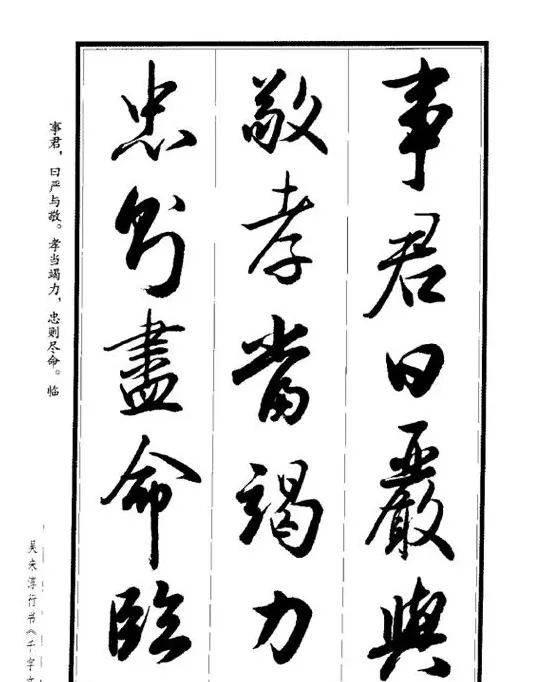 事君曰嚴與
敬孝當竭力
忠則盡命臨
事君，曰严与敬。孝当竭力，忠则尽命。临
吴未淳行书《千字文